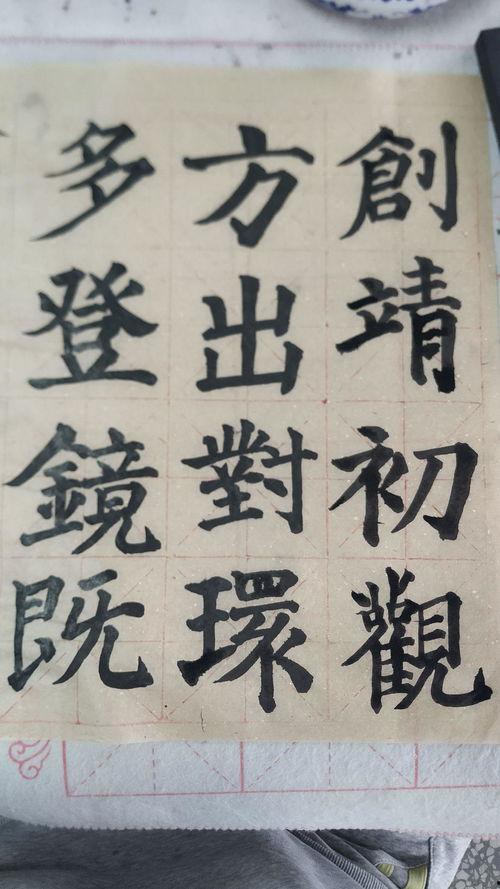 創靖初觀
方出對環
多登鏡既